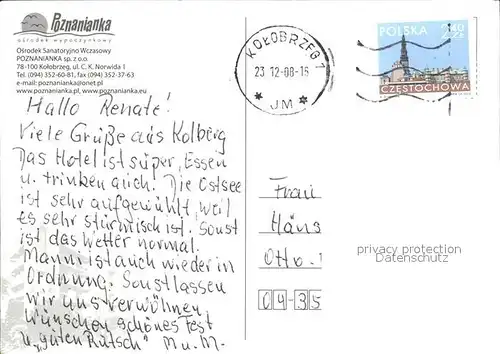 Poznanianka
ośrodek wypoczynkowy
Ośrodek Sanatoryjno Wczasowy
POZNANIANKA sp. z o.o.
78-100 Kołobrzeg, ul. C. K. Norwida 1
Tel. (094) 352-60-81, fax (094) 352-37-63
e-mail: poznanianka@onet.pl
www.poznanianka.pl, www.poznanianka.eu
Hallo Renate!
Viele Grüße aus Kolberg
Das Hotel ist super, Essen
u. trinken auch. Die Ostsee
ist sehr aufgewühlt, weil
es sehr stürmisch ist. Sonst
ist das Wetter normal.
Manni ist auch wieder in
Ordnung. Sonst lassen
wir uns verwöhnen
Wünschen schönes Fest
u. „guten Rutsch" M u. M.
KOŁOBRZEG 1
23 12-08-16
* JM *
POLSKA
2,40 ZŁ
CZĘSTOCHOWA
Frau
Häns
Otto
04-35
privacy protection
Datenschutz